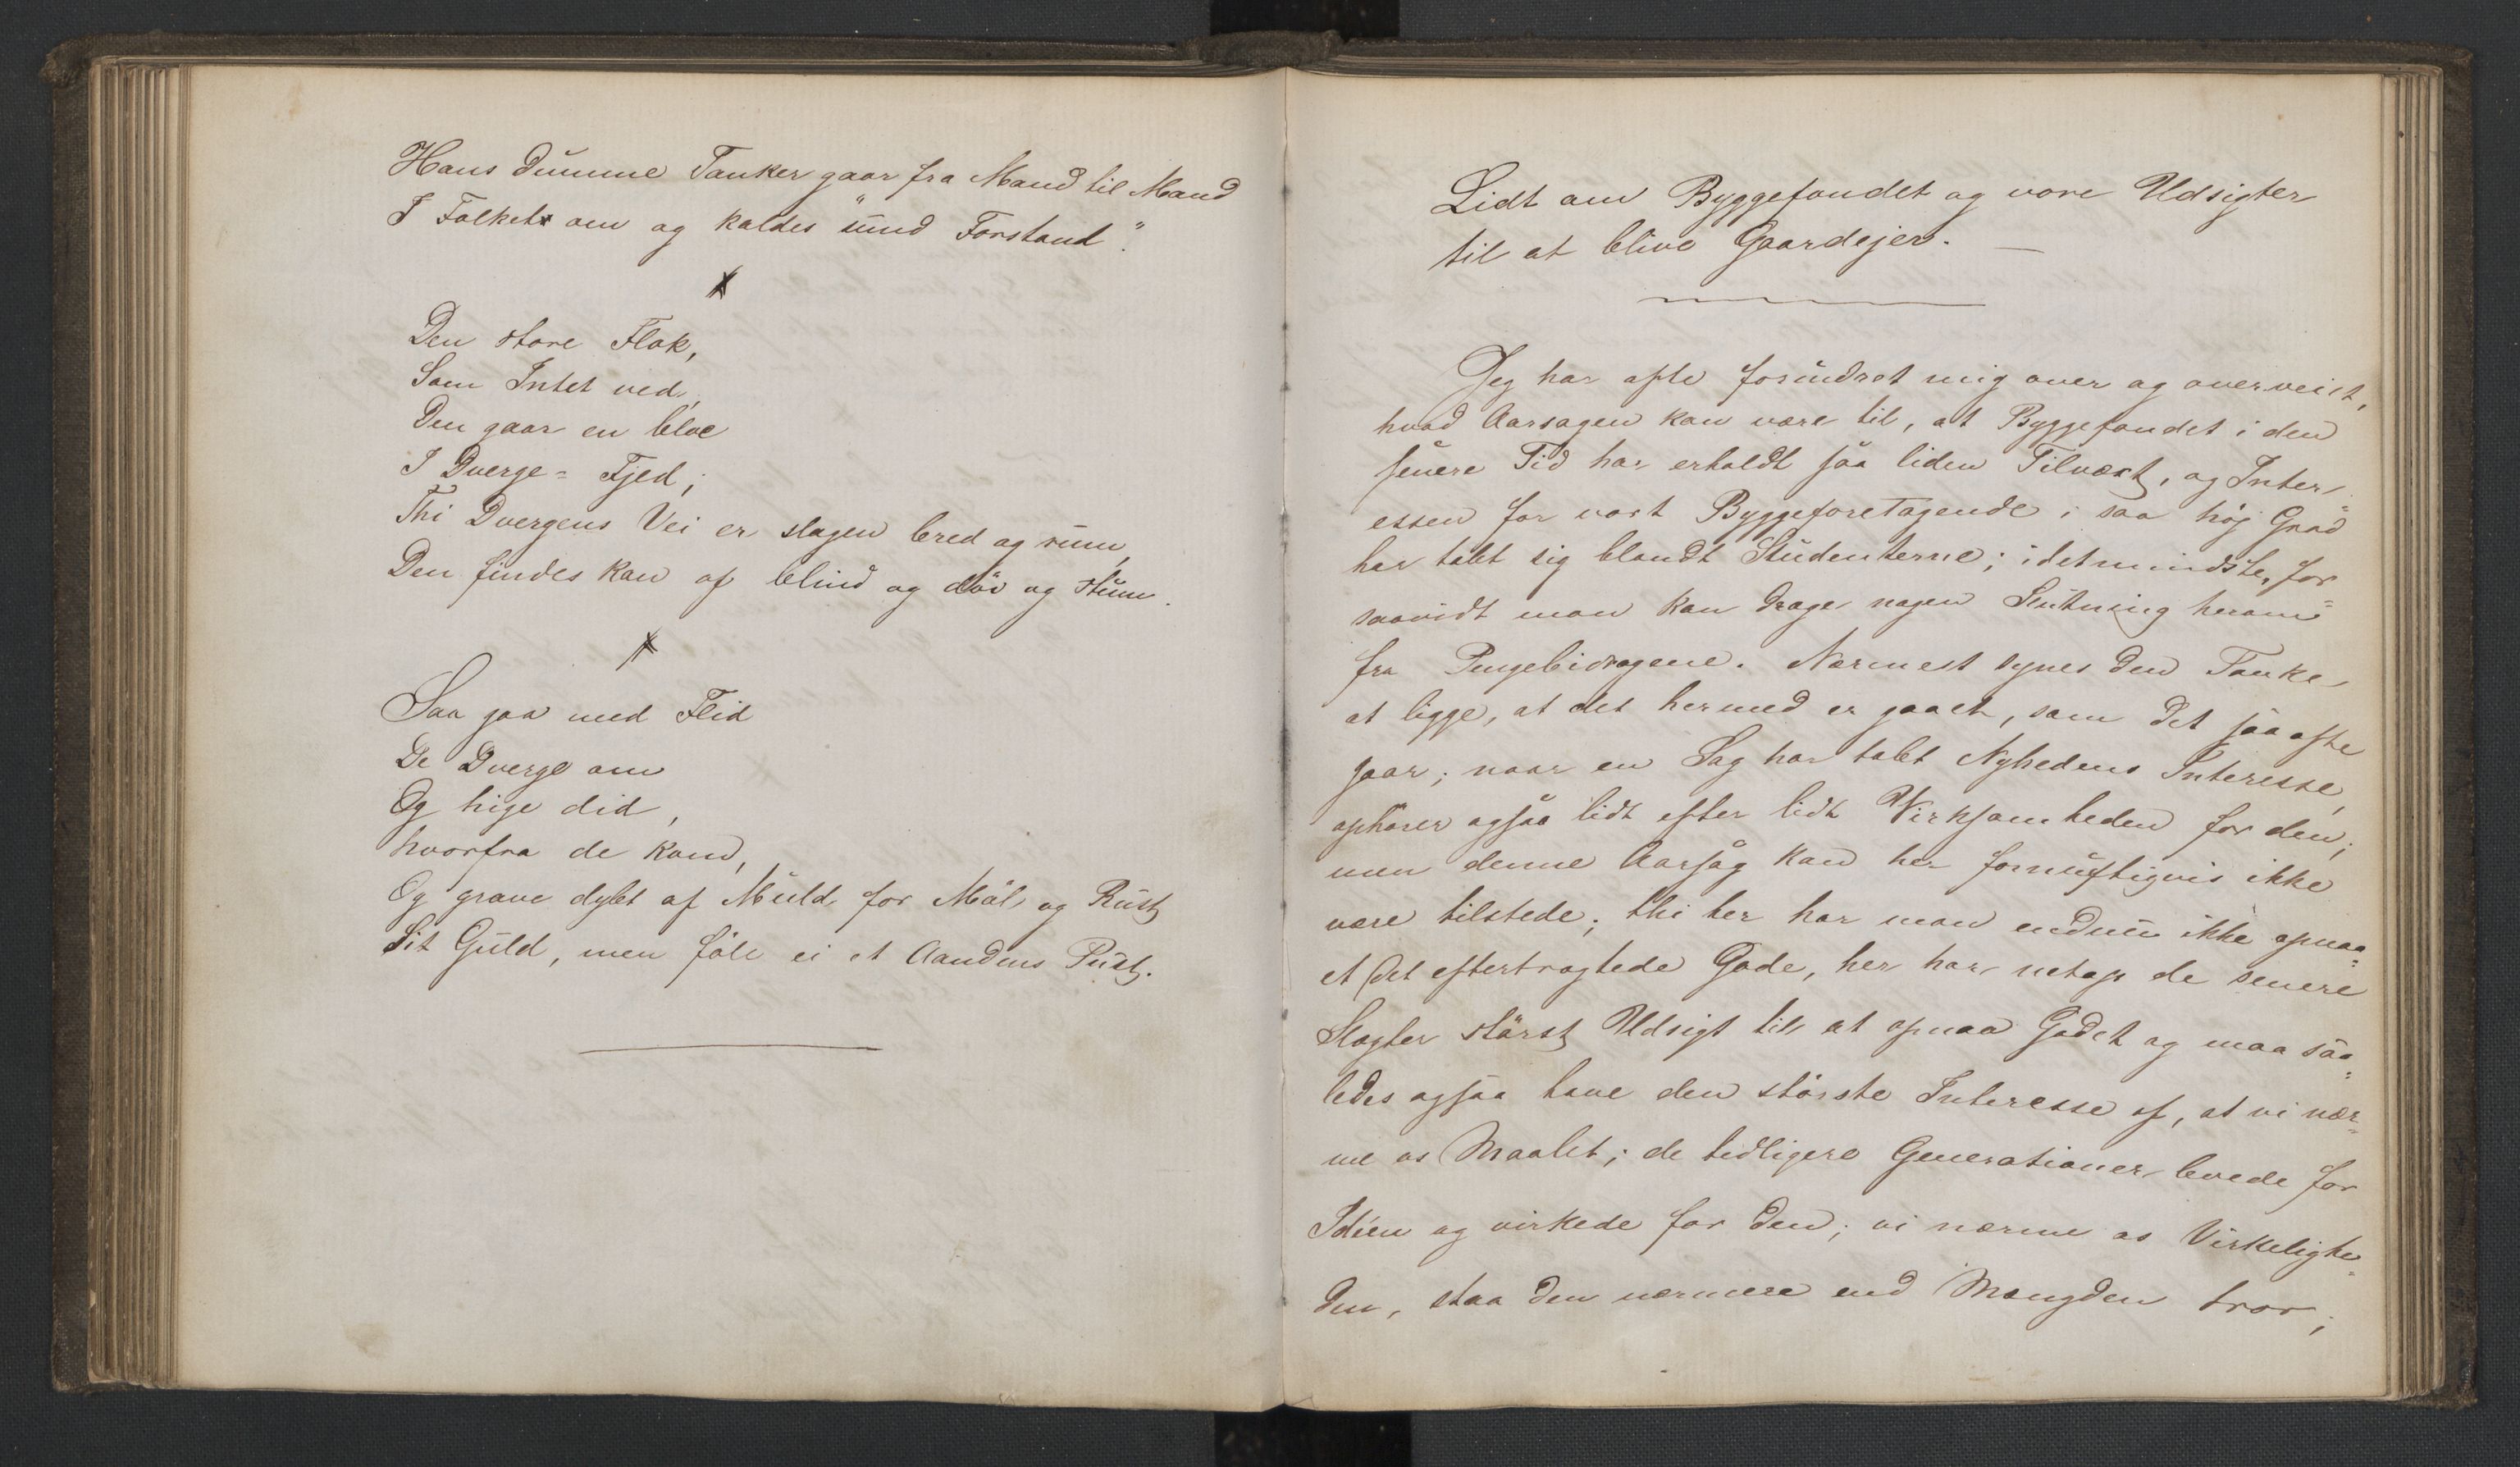 Hans dumme Tanker gaar fra Mand til Mand
I Folket om og kaldes "sund Forstand".
Den store Flok,
Som Intet ved,
Den gaar en bloc
I Dverge-Fjed;
Thi Dvergens Vei er slagen bred og rum,
Den findes kan af blind og döv og stum.
Saa gaa med Flid
De Dverge om
Og hige did,
hvorfra de kom,
Og grave dybt af Muld for Möl og Rust
Sit Guld, men föle ei et Aandens Pust.
Lidt om Byggefondet og vore Udsigter
til at blive Gaardejer. —
Jeg har ofte forundret mig over og overveiet,
hvad Aarsagen kan være til, at Byggefondet i den
senere Tid har erholdt saa liden Tilvæxt, og Inter-
essen for vort Byggeforetagende i saa höj Grad
har tabt sig blandt Studenterne; i det mindste, for
saavidt man kan drage nogen Slutning herom
fra Pengebidragene. Nærmest synes den Tanke
at ligge, at det hermed er gaaet, som det saa ofte
gaar; naar en Sag har tabt Nyhedens Interesse,
ophörer ogsaa lidt efter lidt Virksomheden for den;
men denne Aarsag kan her fornuftigvis ikke
være tilstede; thi her har man endnu ikke opnaa-
et det eftertragtede Gode, her har netop de senere
Slægter störst Udsigt til at opnaa Godet og maa saa-
ledes ogsaa have den störste Interesse af, at vi nær-
me os Maalet; de tidligere Generationer levede for
Ideen og virkede for den; vi nærme os Virkelighe-
den, staa den nærmere end Mængden tror;